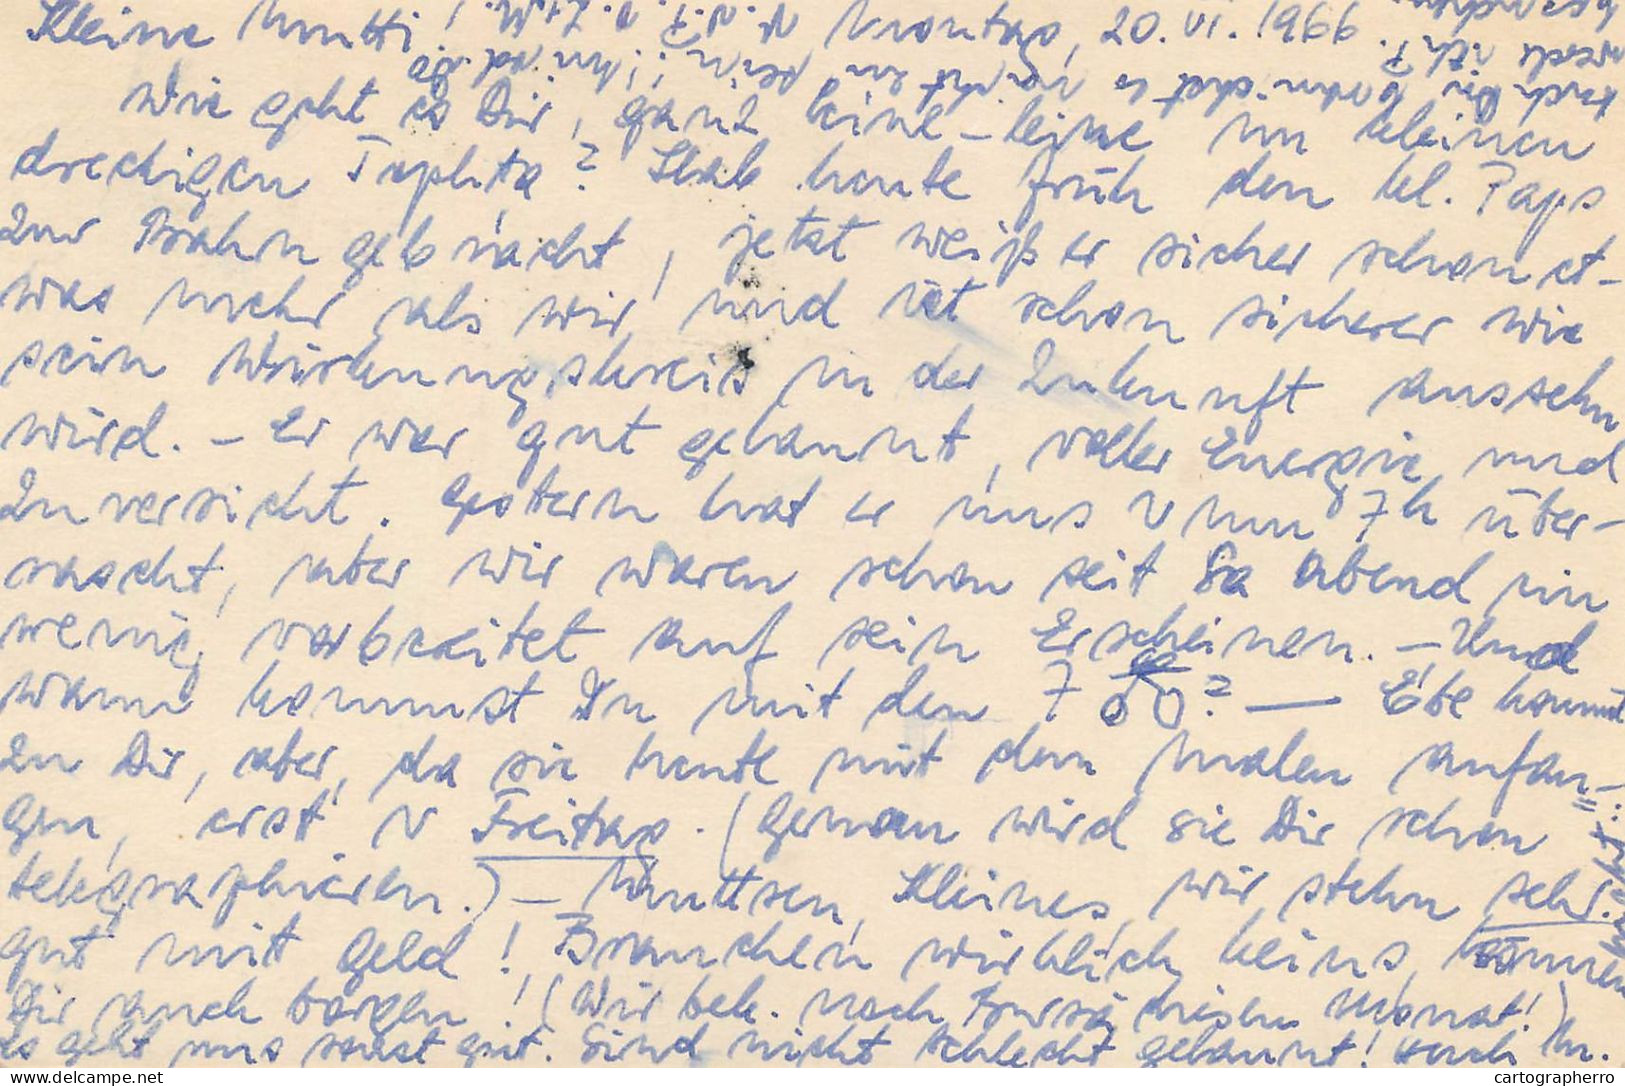 Kleine Mutti! Montag, 20. VI. 1966.
Wie geht es Dir, ganz leine-leine im kleinen
dreckigen Toplita? Hab heute früh den kl. Paps
zur Bahn gebracht, jetzt weiß er sicher schon et-
was mehr als wir und ist schon sicherer wie
sein Wirkungskreis in der Zukunft aussehn
wird. – Er war gut gelaunt, voller Energie und
Zuversicht. Gestern hat er uns um 7h über-
rascht, aber wir waren schon seit Sa abend ein
wenig vorbereitet auf sein Erscheinen. – Und
wann kommst Du mit den 7 ? — Ebe kommt
zu Dir, aber, da sie heute mit dem Malen anfan-
gen, erst Freitag. (Genau wird sie Dir schon
telegraphieren.) – Muttsen, Kleines, wir stehn sehr
gut mit Geld! Brauchen wirklich keins, können
Dir auch borgen! (Wir bek. noch Monat!)
es geht uns sonst gut. Sind nicht schlecht gelaunt! auch
delcampe.net
cartographerro